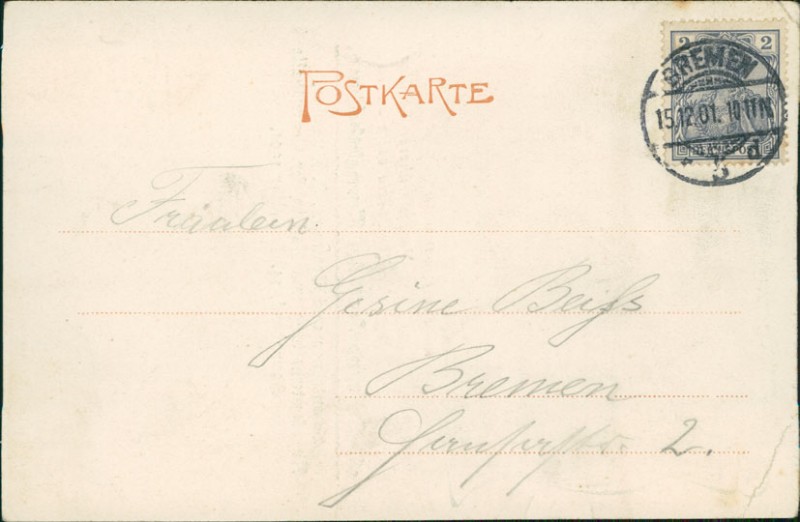 POSTKARTE
2 2
BREMEN
15.12.01. 10-11N
* 5 d
REICHSPOST
Fräulein
Gesine Beißs
Bremen
2.